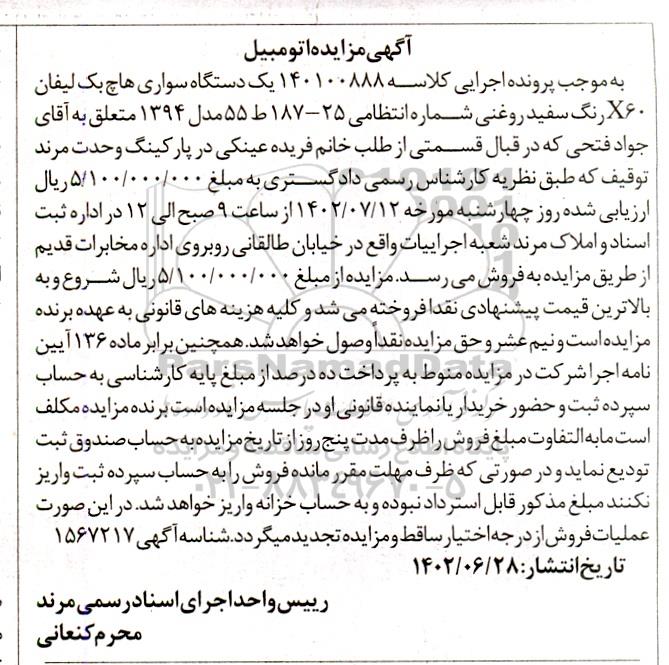 آگهی مزایده اتومبیل
به موجب پرونده اجرایی کلاسه ۱۴۰۱۰۰۸۸۸ یک دستگاه سواری هاچ بک لیفان
X۶۰ رنگ سفید روغنی شماره انتظامی ۲۵-۱۸۷ ط ۵۵ مدل ۱۳۹۴ متعلق به آقای
جواد فتحی که در قبال قسمتی از طلب خانم فریده عینکی در پارکینگ وحدت مرند
توقیف که طبق نظریه کارشناس رسمی دادگستری به مبلغ ۵/۱۰۰/۰۰۰/۰۰۰ ریال
ارزیابی شده روز چهارشنبه مورخه ۱۴۰۲/۰۷/۱۲ از ساعت ۹ صبح الی ۱۲ در اداره ثبت
اسناد و املاک مرند شعبه اجراییات واقع در خیابان طالقانی روبروی اداره مخابرات قدیم
از طریق مزایده به فروش می رسد. مزایده از مبلغ ۵/۱۰۰/۰۰۰/۰۰۰ ریال شروع و به
بالاترین قیمت پیشنهادی نقدا فروخته می شد و کلیه هزینه های قانونی به عهده برنده
مزایده است و نیم عشر و حق مزایده نقداً وصول خواهد شد. همچنین برابر ماده ۱۳۶ آیین
نامه اجرا شرکت در مزایده منوط به پرداخت ده درصد از مبلغ پایه کارشناسی به حساب
سپرده ثبت و حضور خریدار یا نماینده قانونی او در جلسه مزایده است برنده مزایده مکلف
است مابه التفاوت مبلغ فروش را ظرف مدت پنج روز از تاریخ مزایده به حساب صندوق ثبت
تودیع نماید و در صورتی که ظرف مهلت مقرر مانده فروش را به حساب سپرده ثبت واریز
نکنند مبلغ مذکور قابل استرداد نبوده و به حساب خزانه واریز خواهد شد. در این صورت
عملیات فروش از درجه اختیار ساقط و مزایده تجدید میگردد. شناسه آگهی ۱۵۶۷۲۱۷
تاریخ انتشار: ۱۴۰۲/۰۶/۲۸
رییس واحد اجرای اسناد رسمی مرند
محرم کنعانی
ParsNamadData
۰۲۱-۸۸۳۴۹۶۷۰-۵